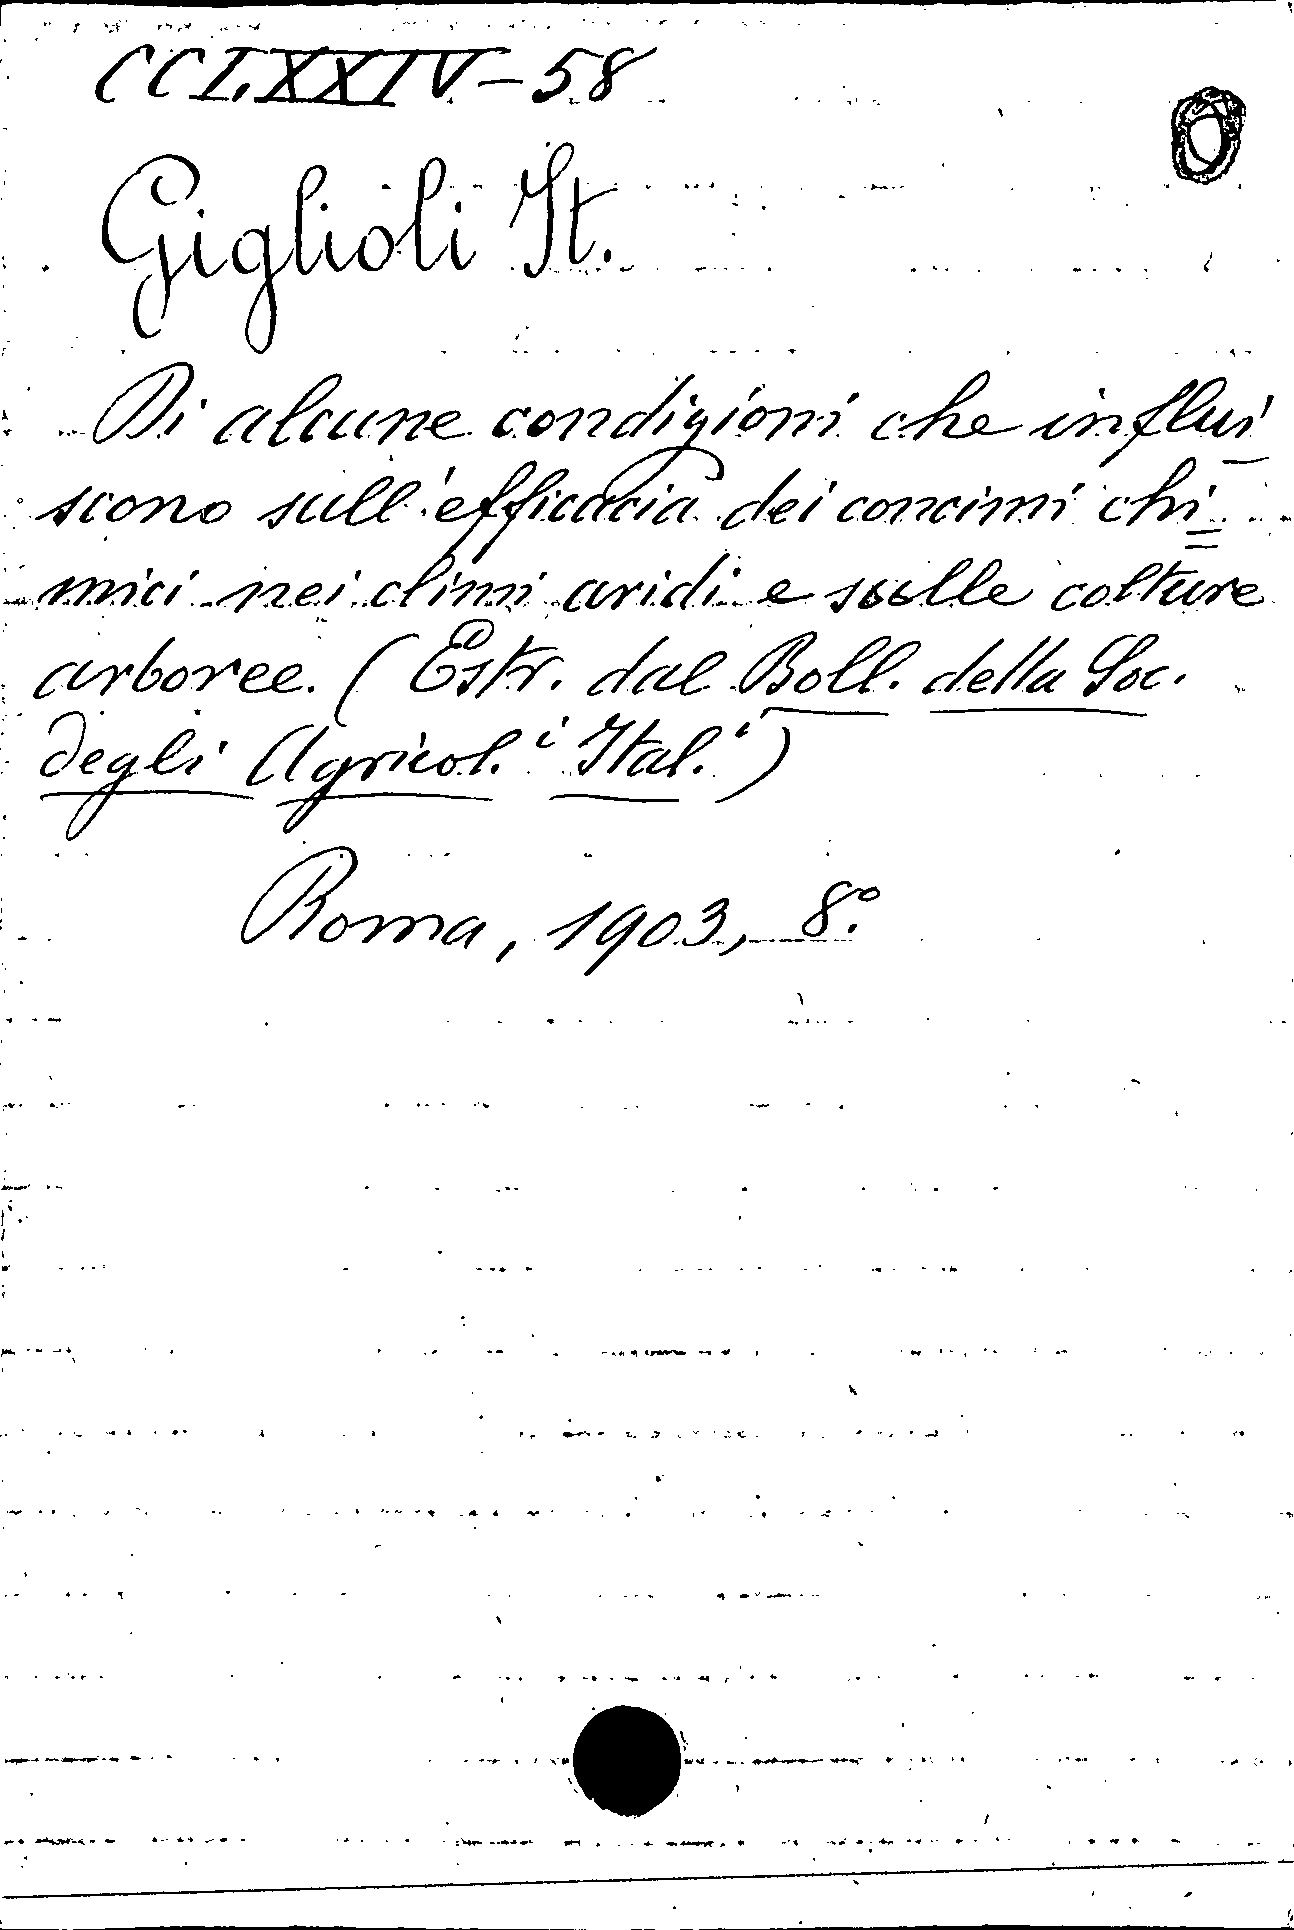 CCLXXIV-58
Giglioli It.
Di alcune condizioni che influi
scono sull'efficacia dei concimi chi=
mici nei climi aridi e sulle colture
arboree. (Estr. dal Boll. della Soc.
degli Agricol.i Ital.i)
Roma, 1903, 8.°